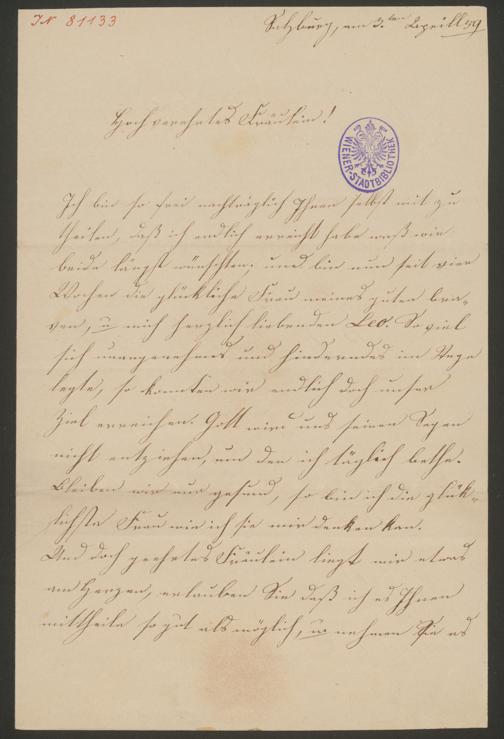 IN 81133
Salzburg, am 3.ten April 59
Hochverehrtes Fräulein!
WIENER STADTBIBLIOTHEK
Ich bin so frei nachträglich Ihnen selbst mit zu
theilen, daß ich endlich erreicht habe was wir
beide längst wünschten; und bin nun seit vier
Wochen die glückliche Frau meines guten bra-
ven, u. mich herzlich liebenden Leo. So viel
sich unangenehmes und hinderndes im Wege
legte, so konnten wir endlich doch unser
Ziel erreichen. Gott wird uns seinen Segen
nicht entziehen, um den ich täglich bethe.
Bleiben wir nur gesund, so bin ich die glük-
lichste Frau wie ich sie mir denken kan.
Und doch geehrtes Fräulein liegt mir etwas
am Herzen, erlauben Sie daß ich es Ihnen
mittheile so gut als möglich, u. nehmen Sie es